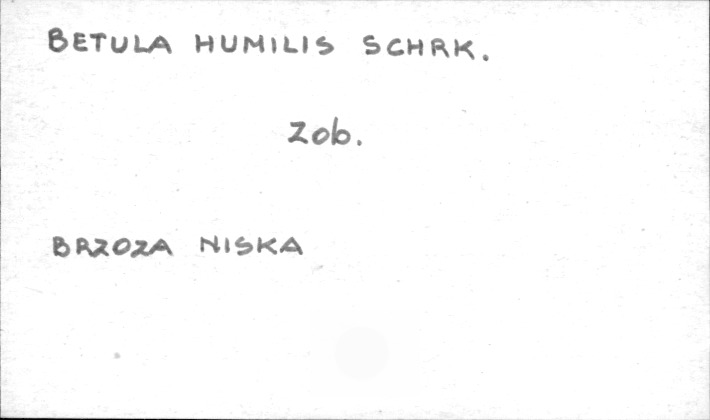 BETULA HUMILIS SCHRK.
Zob.
BRZOZA NISKA